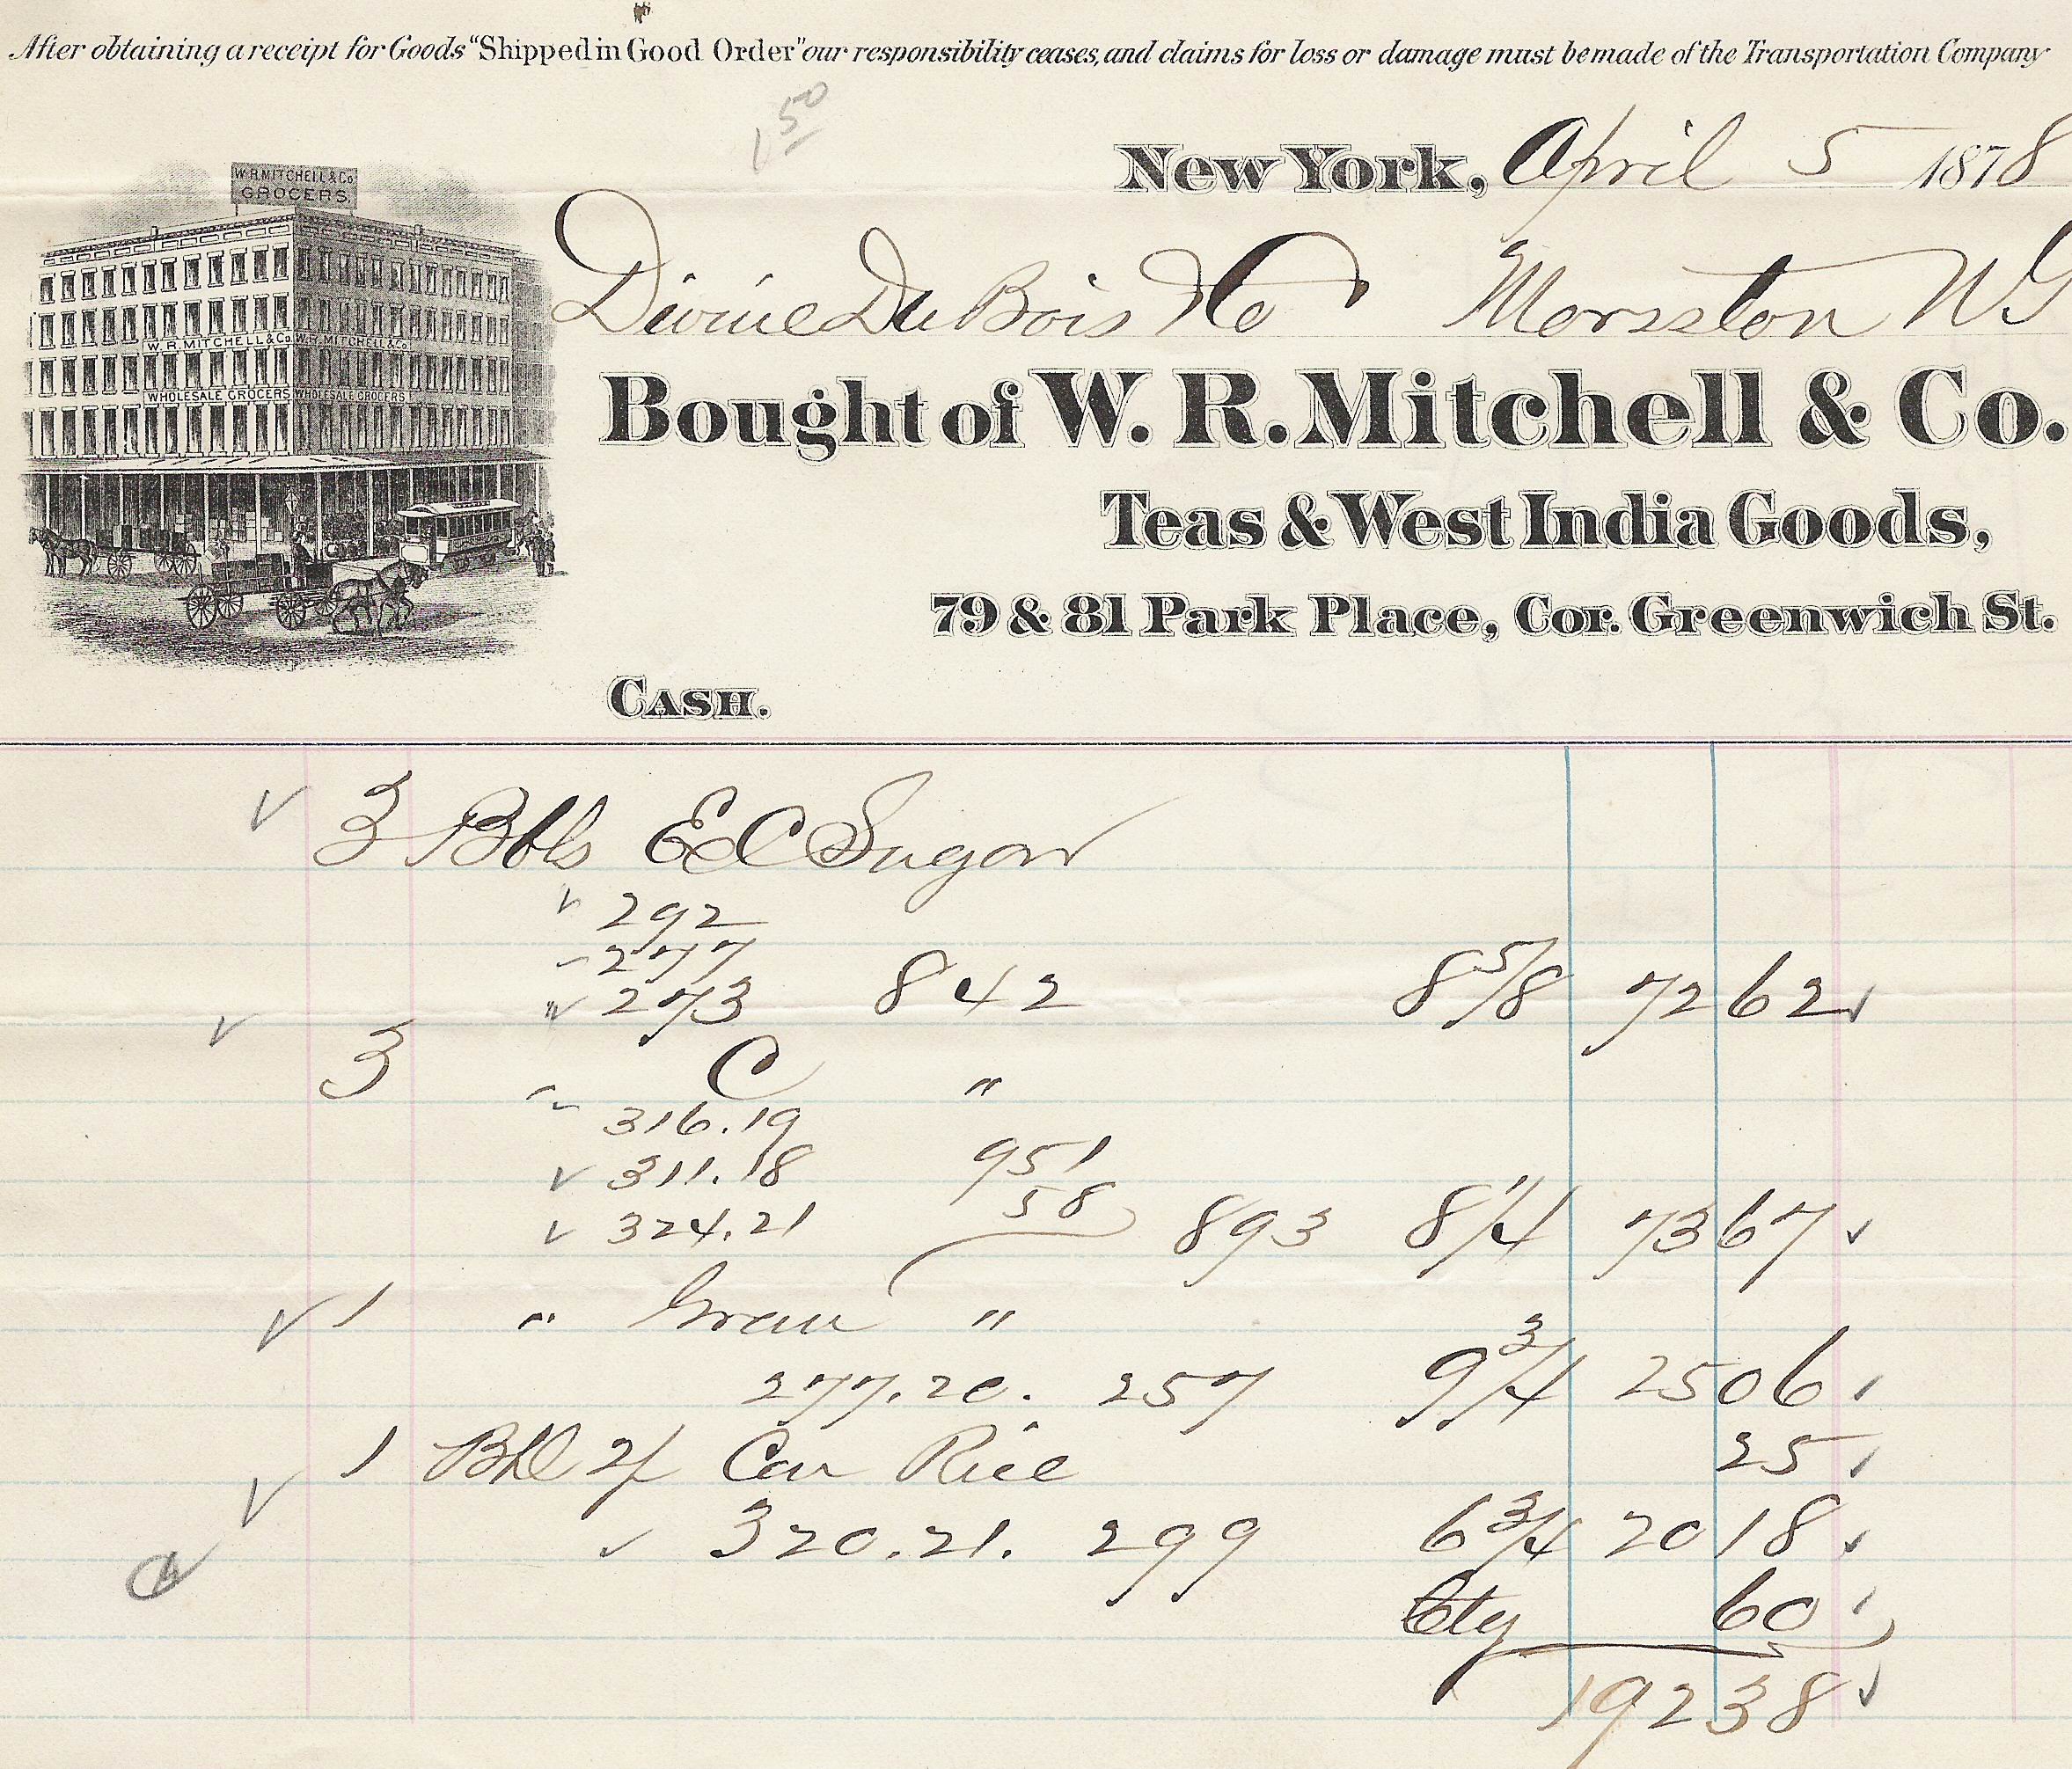 After obtaining a receipt for Goods "Shipped in Good Order" our responsibility ceases, and claims for loss or damage must be made of the Transportation Company
1 50
New York, April 5 1878
W. R. MITCHELL & Co.
GROCERS.
Divine DuBois & Co
W. R. MITCHELL & Co. W. R. MITCHELL & Co.
WHOLESALE GROCERS WHOLESALE GROCERS
Bought of W. R. Mitchell & Co.
Teas & West India Goods,
79 & 81 Park Place, Cor. Greenwich St.
CASH.
3 Bbls EC Sugar
292
277
273 842 8 5/8 72 62
3 " C "
316.19
311.18 951
324.21 58 893 8 1/4 73 67
1 " Gran "
277.20. 257 9 3/4 25 06
1 Bbl Car Rice 25
320.21. 299 6 3/4 20 18
Ctg 60
192 38